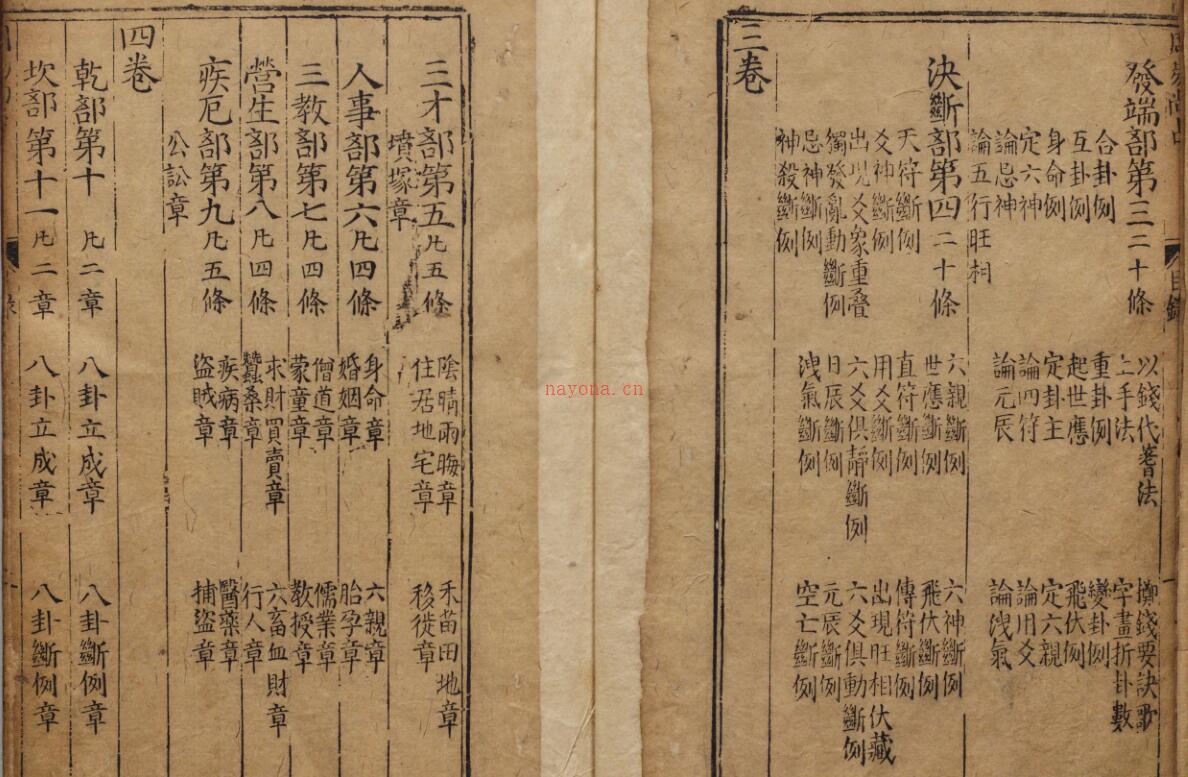 目錄
發端部第三二十條 以錢代蓍法 擲錢要訣歌
上手法 字畫折卦數
合卦例 重卦例 變卦例
互卦例 起世應 飛伏例
身命例 定卦主 定六親
定六神 論四符 論用爻
論忌神 論元辰 論洩氣
論五行旺相
決斷部第四二十條 六親斷例 六神斷例
世應斷例 飛伏斷例
天符斷例 直符斷例 傳符斷例
爻神斷例 用爻斷例 出現旺相伏藏
出現爻衆重叠 六爻俱靜斷例 六爻俱動斷例
獨發亂動斷例 日辰斷例 元辰斷例
忌神斷例 洩氣斷例 空亡斷例
神殺斷例
三卷
三才部第五凡五條 陰晴雨晦章 禾苗田地章
住居地宅章 移徙章
墳塚章
人事部第六凡四條 身命章 六親章
婚姻章 胎孕章
三教部第七凡四條 僧道章 儒業章
蒙童章 教授章
營生部第八凡四條 求財買賣章 六畜血財章
蠶桑章 行人章
疾厄部第九凡五條 疾病章 醫藥章
盜賊章 捕盜章
公訟章
四卷
乾部第十 凡二章 八卦立成章 八卦斷例章
坎部第十一 凡二章 八卦立成章 八卦斷例章
nayona.cn